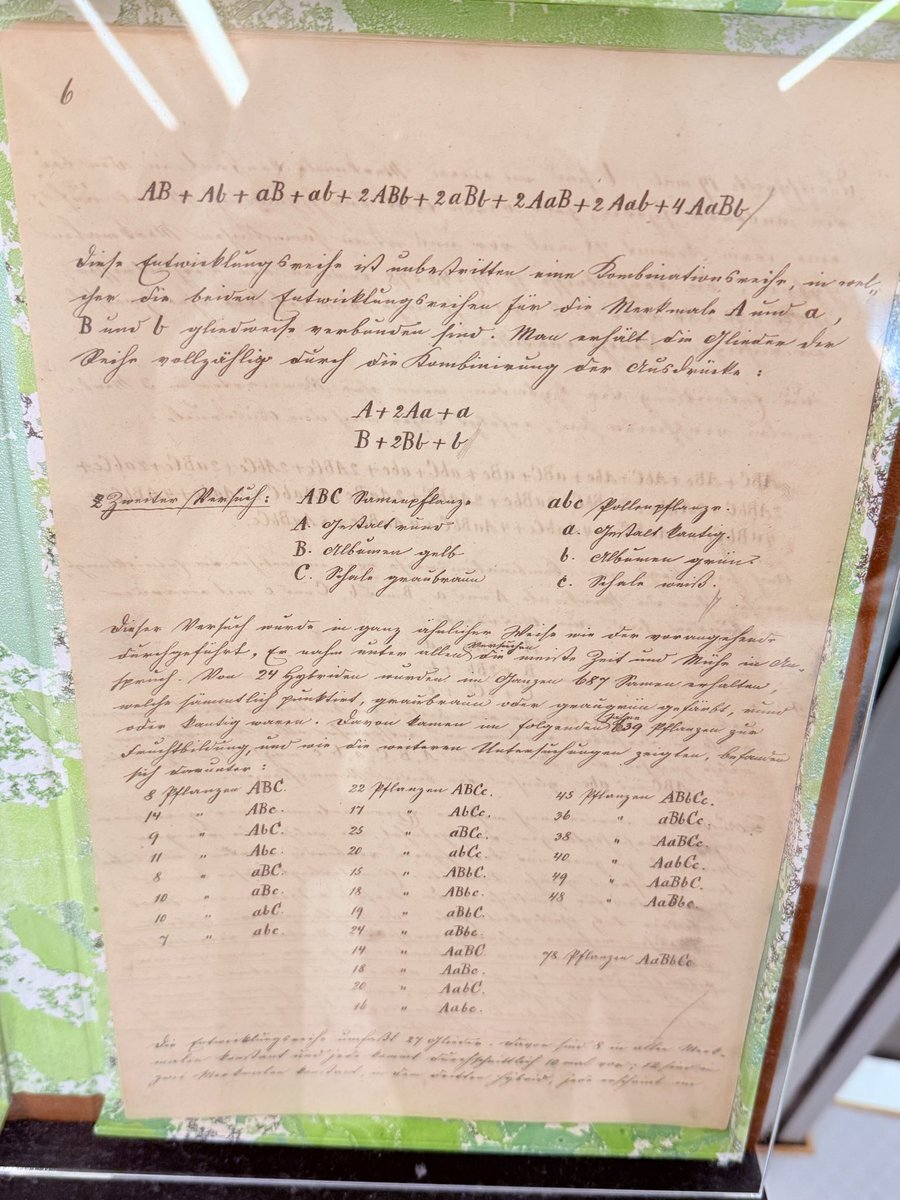 6
AB + Ab + aB + ab + 2ABb + 2aBb + 2AaB + 2Aab + 4AaBb
Diese Entwicklungsreihe ist unbestritten eine Kombinationsreihe, in wel-
cher die beiden Entwicklungsreihen für die Merkmale A und a,
B und b gliedweise verbunden sind. Man erhält die Glieder der
Reihe vollzählig durch die Kombinirung der Ausdrücke:
A + 2Aa + a
B + 2Bb + b
2 Zweiter Versuch: ABC Samenpflanze abc Pollenpflanze.
A. Gestalt rund a. Gestalt kantig.
B. Albumen gelb b. Albumen grün
C. Schale graubraun c. Schale weiß.
Dieser Versuch wurde in ganz ähnlicher Weise wie der vorangehende
durchgeführt. Er nahm unter allen Versuchen die meiste Zeit und Mühe in An-
spruch. Von 24 Hybriden wurden im Ganzen 687 Samen erhalten,
welche sämmtlich punktirt, graubraun oder graugrün gefärbt, rund
oder kantig waren. Davon kamen im folgenden Jahre 639 Pflanzen zur
Fruchtbildung, und wie die weiteren Untersuchungen zeigten, befanden
sich darunter:
8 Pflanzen ABC. 22 Pflanzen ABCc. 45 Pflanzen ABbCc.
14 " ABc. 17 " AbCc. 36 " aBbCc.
9 " AbC. 25 " aBCc. 38 " AaBCc.
11 " Abc. 20 " abCc. 40 " AabCc.
8 " aBC. 15 " ABbC. 49 " AaBbC.
10 " aBc. 18 " ABbc. 48 " AaBbc.
10 " abC. 19 " aBbC.
7 " abc. 24 " aBbc.
14 " AaBC 78 Pflanzen AaBbCc
18 " AaBc.
20 " AabC.
16 " Aabc.
Die Entwicklungsreihe umfaßt 27 Glieder. Davon sind 8 in allen Merk-
malen konstant und jede kommt durchschnittlich 10 mal vor; 12 sind in
zwei Merkmalen konstant, in dem dritten hybrid, jede erscheint im